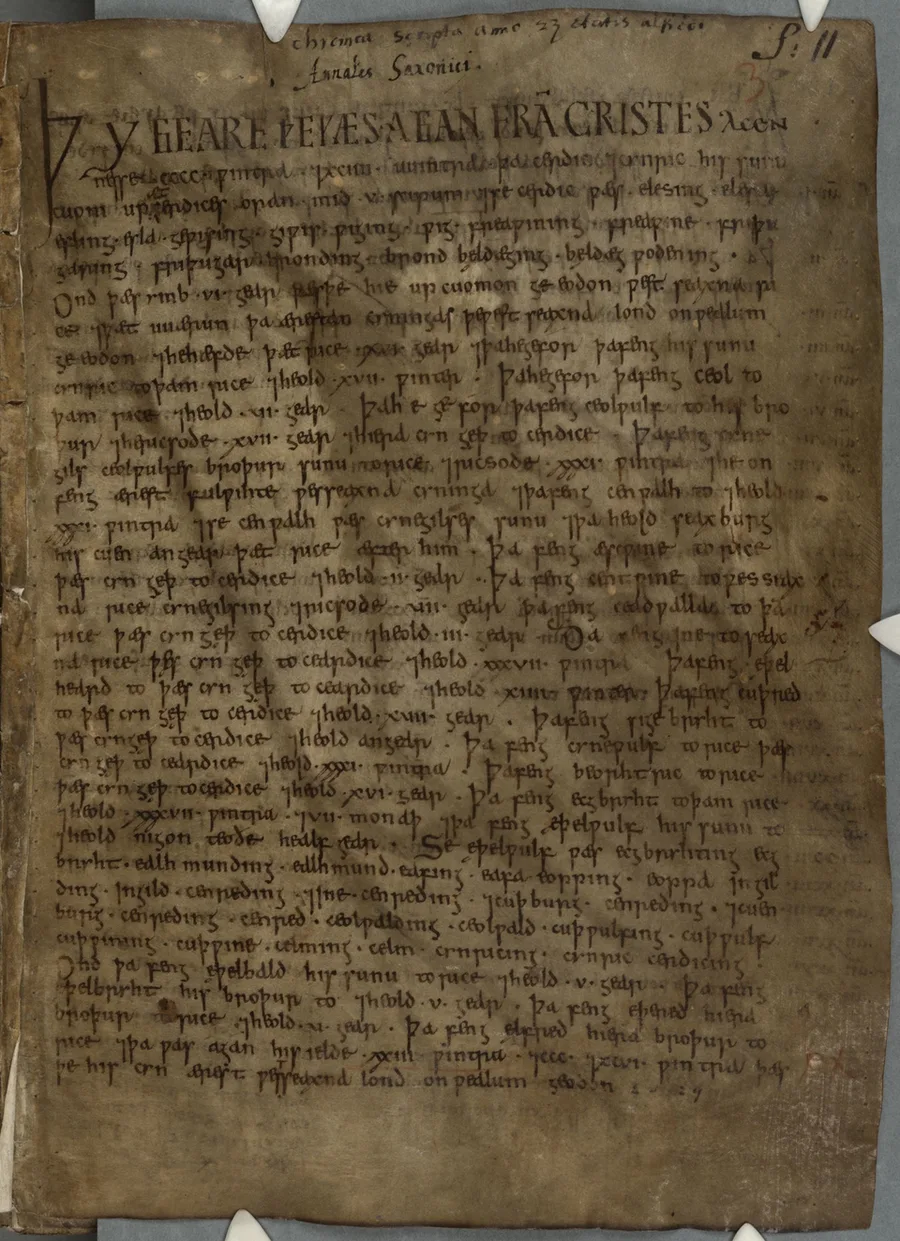 chronica scripta anno 23 etatis alfredi
S: 11
Annales Saxonici.
ÞY GEARE ÞE ǷÆS AGAN FRÃ CRISTES ACEN
nesse .cccc. ƿintra ⁊xciiii uuintra þa cerdic ⁊cynric his sunu
cuom up æt cerdices oran mid .v. scipum ⁊se cerdic ƿæs elesing elesa
esling esla geƿising giƿis ƿiging ƿig freaƿining freaƿine
friþugaring bronding brond beldæging beldæg ƿodening
Ond þæs ymb .vi. gear þæs þe hie up cuomon ge eodon ƿest seaxna ri
ce ⁊þæt uuærun þa ærestan cyningas þe ƿest seaxna lond on ƿealum
ge eodon ⁊he hæfde þæt rice .xvi. gear ⁊þa he gefor þa feng his sunu
cynric to þam rice ⁊heold .xvii. ƿinter . Þa he gefor þa feng ceol to
þam rice ⁊heold .vi. gear . Þa he gefor þa feng ceolƿulf to his bro
þur ⁊he ricsode .xvii. gear ⁊hiera cyn geþ to cerdice . Þa feng cyne
gils ceolƿulfes broþur sunu to rice ⁊ricsode .xxxi. ƿintra ⁊he on
feng ærest fulƿihte ƿesseaxna cyninga ⁊þa feng cenƿalh to ⁊heold
.xxxi. ƿintra ⁊se cenƿalh ƿæs cynegilses sunu ⁊þa heold seaxburg
his cuen an gear þæt rice æfter him . Þa feng æscƿine to rice
þæs cyn geþ to cerdice ⁊heold .ii. gear . Þa feng centƿine to ƿesseax
na rice cynegilsing ⁊ricsode .vii. gear . Þa feng ceadƿalla to þam
rice þæs cyn geþ to cerdice ⁊heold .iii. gear . Þa feng ine to seax
na rice þæs cyn geþ to ceardice ⁊heold .xxxvii. ƿintra . Þa feng eþel
heard to þæs cyn geþ to ceardice ⁊heold .xiiii. ƿinter . Þa feng cuþred
to þæs cyn geþ to cerdice ⁊heold .xvii. gear . Þa feng sigebryht to
þæs cyn geþ to cerdice ⁊heold an gear . Þa feng cyneƿulf to rice þæs
cyn geþ to ceardice ⁊heold .xxxi. ƿintra . Þa feng beorhtric to rice
þæs cyn geþ to cerdice ⁊heold .xvi. gear . Þa feng ecgbryht to þam rice
⁊heold .xxxvii. ƿintra . ⁊vii. monaþ ⁊þa feng eþelƿulf his sunu to
⁊heold nigon teoðe healf gear . Se eþelƿulf ƿæs ecgbryhting ecg
bryht ealhmunding ealhmund eafing eafa eopping eoppa ingil
ding ingild cenreding ⁊ine cenreding ⁊cuþburg cenreding ⁊cuen
burg cenreding cenred ceolƿalding ceolƿald cuþƿulfing cuþƿulf
cuþƿining cuþƿine celming celm cynricing cynric cerdicing
Ond þa feng eþelbald his sunu to rice ⁊heold .v. gear . Þa feng
eþelbryht his broþur to ⁊heold .v. gear . Þa feng eþered hiera
broþur to rice ⁊heold .v. gear . Þa feng elfred hiera broþur to
rice ⁊þa ƿæs agan his ielde .xxiii. ƿintra . ⁊ccc. ⁊xcvi. ƿintra þæs
þe his cyn ærest ƿesseaxna lond on ƿealum geodon